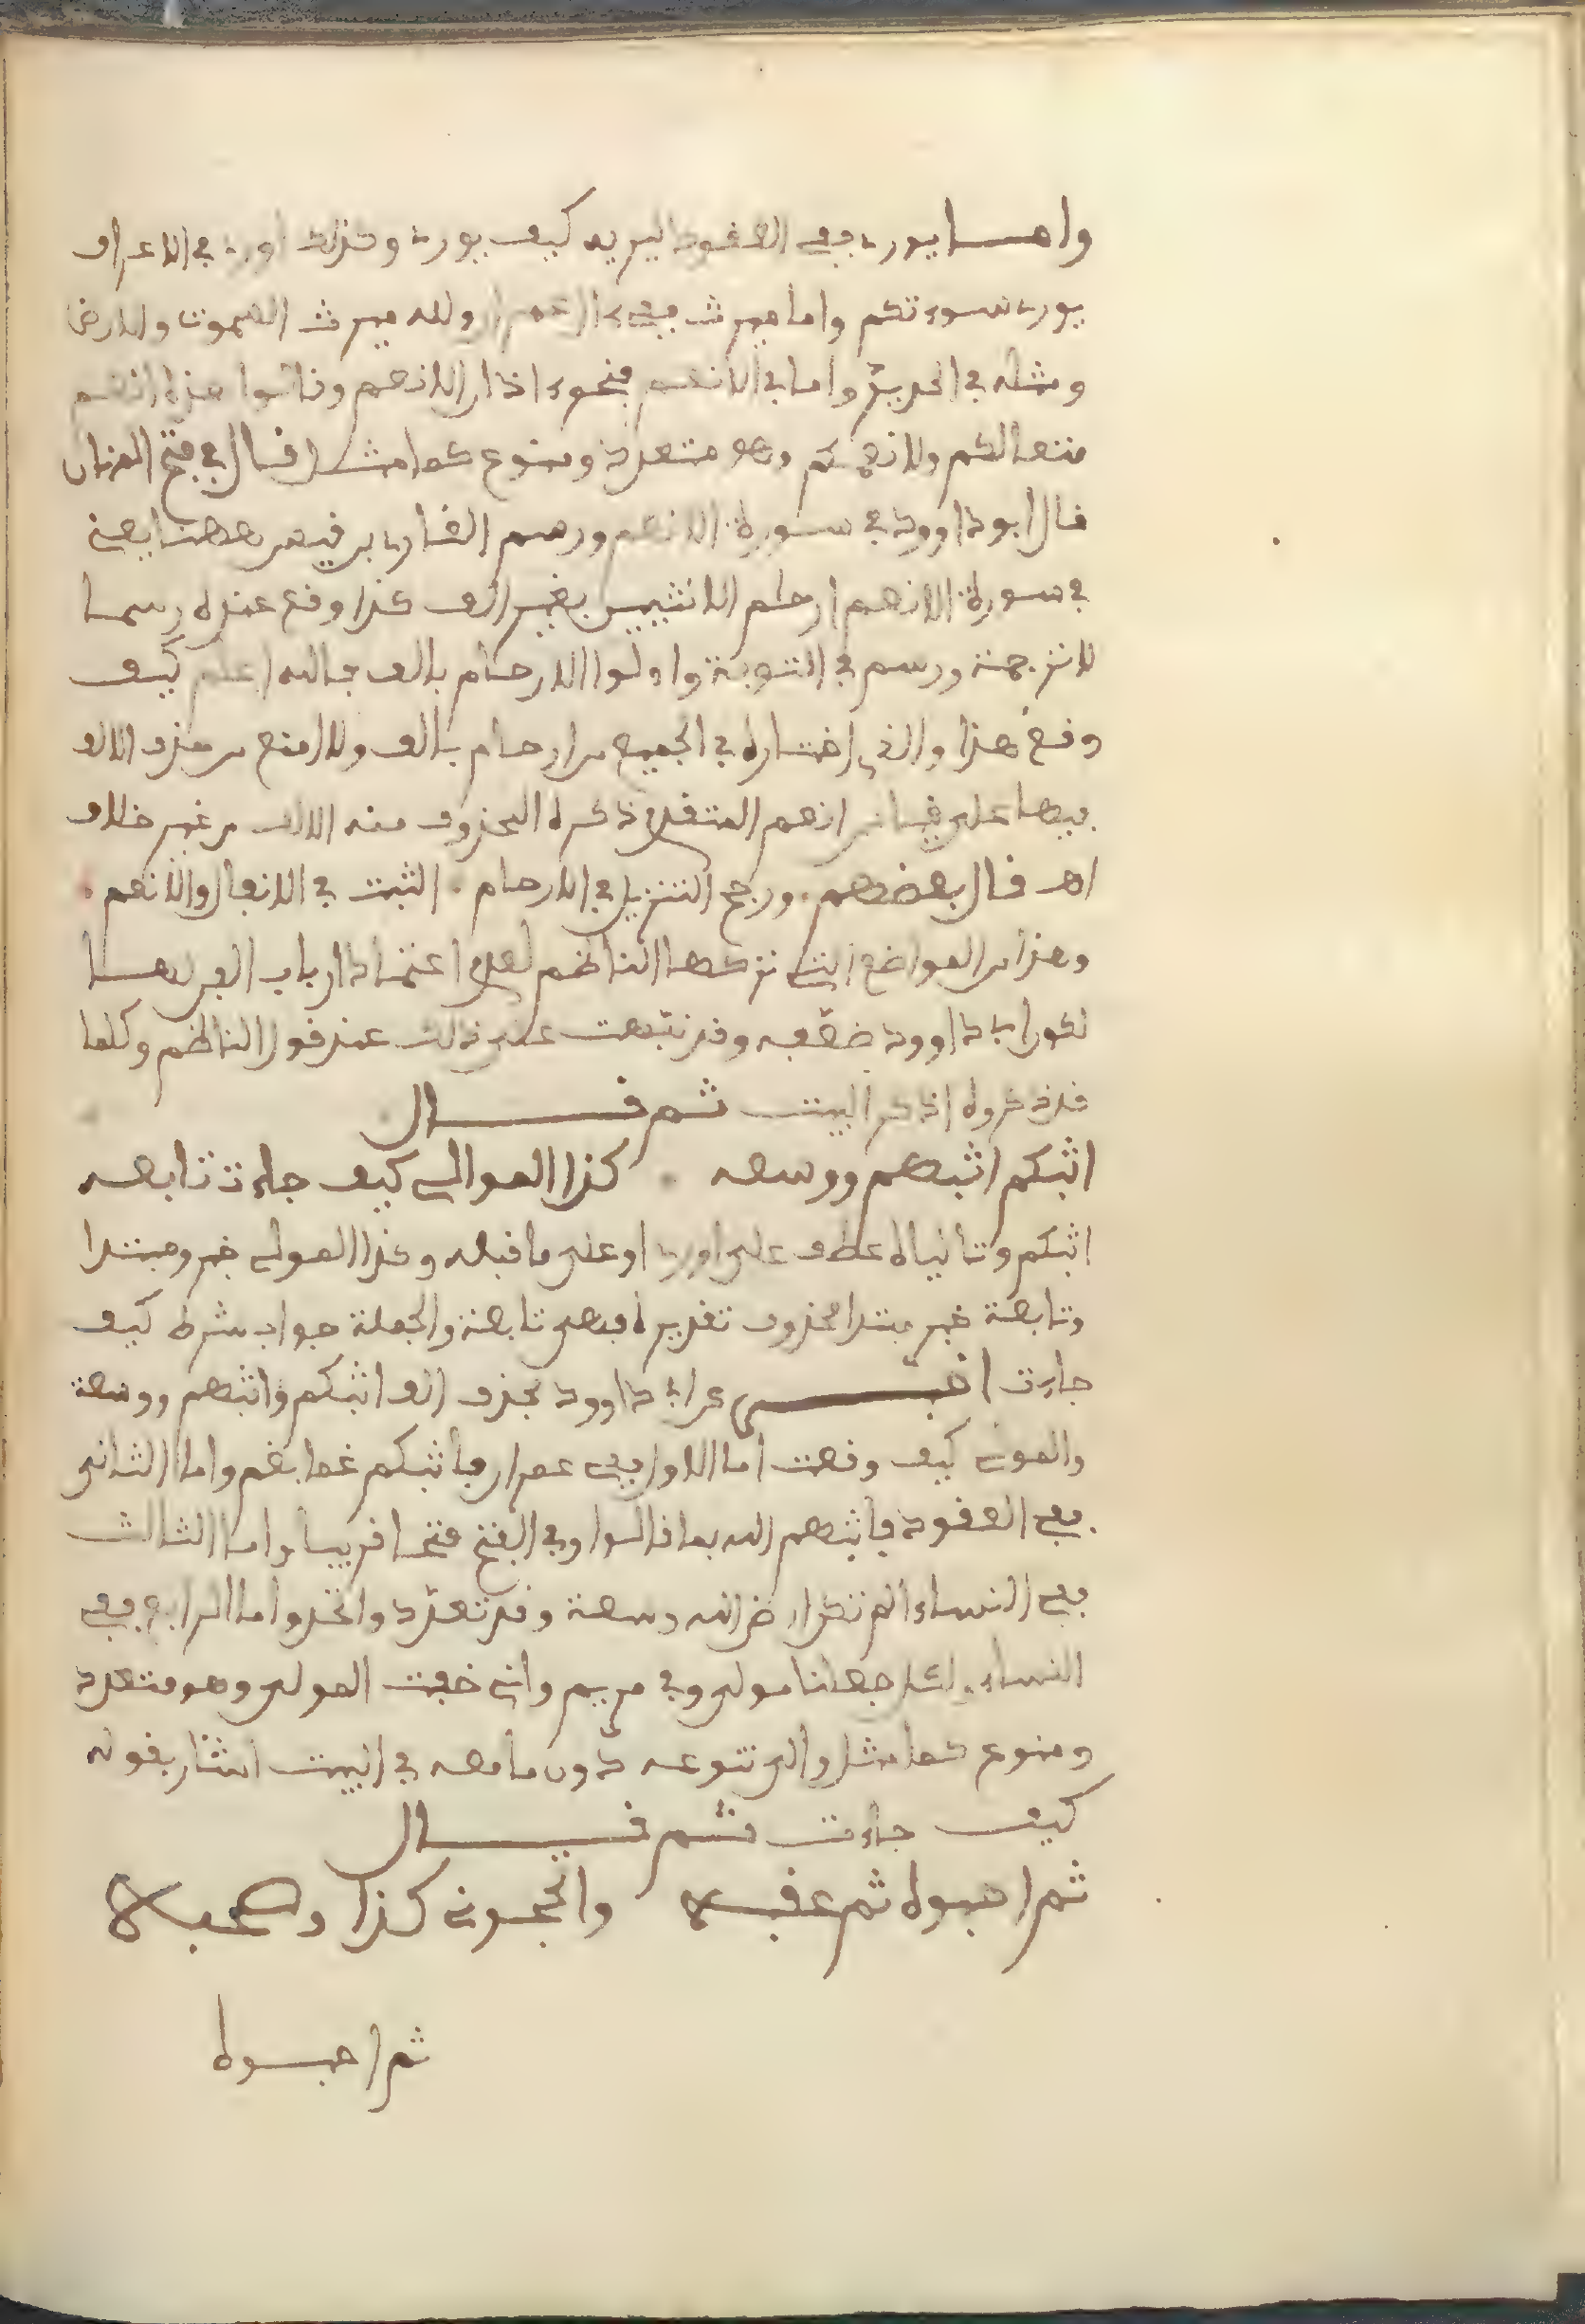 وامـــا يورى ففي العقود ليريه كيف يورى وكذلك اورى في الاعراف
يورى سوءتكم واما ميرث ففي ءال عمران ولله ميرث السموت والارض
ومثله في الحديد واما في الانعم فنحو ءاذان الانعم وقالوا هذه انعم
متعا لكم ولانعمكم وهو متعدد ومنوع كما مثل قال في فتح المنان
قال ابو داوود في سورة الانعم ورسم الغازي بن قيس ههنا يعني
في سورة الانعم ارحام الانثيين بغير الف كذا وقع عنده رسما
لا ترجمة ورسم في التوبة واولوا الارحام بالف فالله اعلم كيف
وقع هذا والذي اختاره في الجميع من ارحام بالف ولا امنع من حذف الالف
فيها على قياس انعم المتقدم ذكره المحذوف منه الالف من غير خلاف
اهـ قال بعضهم . ورجح التنزيل في الارحام . الثبت في الانفال والانعم .
وهذا من المواضع التي تركها الناظم لعدم اعتماد ارباب الفن لها
لكون ابي داوود ضعفه وقد نبهت على ذلك عند قول الناظم وكلما
قد ذكروه اذكر البيت ثم قـــــال
اثبكم اثبهم ووسعه . كذا الموالي كيف جاءت تابعه
اثبكم وتالياه عطف على اورى او على ما قبله وكذا المولي خبر ومبتدا
وتابعة خبر مبتدا محذوف تقديره فهي تابعة والجملة جواب شرط كيف
جاءت اخبـــــر عن ابي داوود بحذف الف اثبكم واثبهم ووسعة
والمولي كيف وقعت اما الاول ففي عمران فأثبكم غما بغم واما الثاني
ففي العقود فأثبهم الله بما قالوا وفي الفتح فتحا قريبا واما الثالث
ففي النساء الم تكن ارض الله وسعة وقد تعدد واتحد واما الرابع ففي
النساء ولكل جعلنا مولي وفي مريم واني خفت المولي وهو متعدد
ومنوع كما مثل والى تنوعه دون ما معه في البيت اشار بقوله
كيف جاءت ثم قـــــال
ثم احبوه ثم عقبه والجمرن كذا وصحبه
ثم احبوه